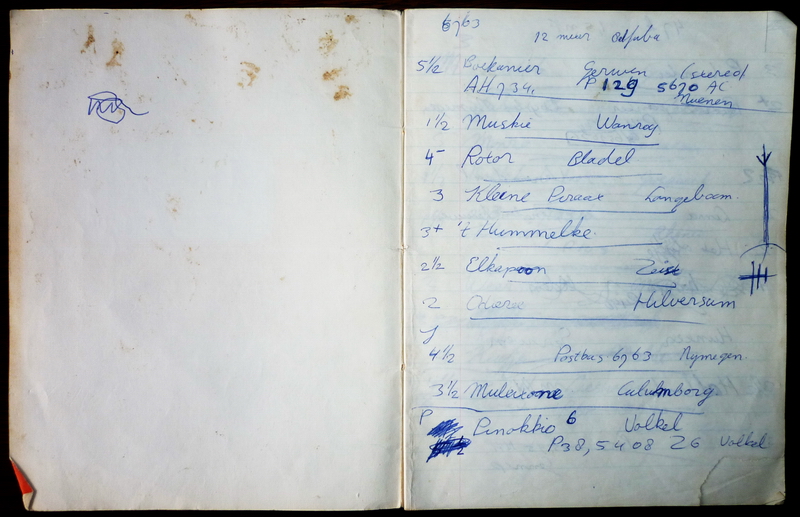 6763
12 meter
5 1/2 Boekanier Gerwen (stereo)
AH 734, P 129 5670 AC
Nuenen
1 1/2 Muskie Wanroy
4- Rotor Bladel
3 Kleine Piraat Langeboom.
3+ 't Hummelke.
2 1/2 Elkapoon Zeist
2 Hilversum
4 1/2 Postbus 6763 Nymegen.
3 1/2 Culumborg
P
Pinokkio 6 Volkel
P38, 5408 ZG Volkel